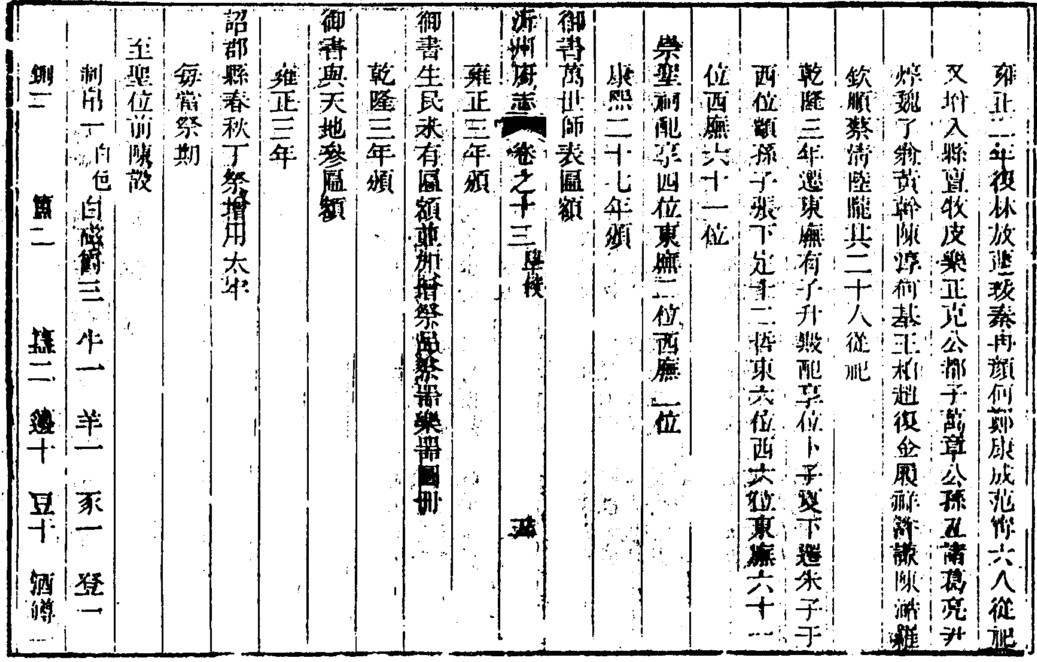 雍正二年復林放蘧瑗秦冉顏何鄭康成范甯六人從祀
又增入縣亶牧皮樂正克公都子萬章公孫丑諸葛亮尹
焞魏了翁黃幹陳淳何基王柏趙復金履祥許謙陳澔羅
欽順蔡清陸隴其二十人從祀
乾隆三年遷東廡有子升殿配享位卜子夏下遷朱子于
西位顓孫子張下定十二哲東六位西六位東廡六十一
位西廡六十一位
崇聖祠配享四位東廡二位西廡一位
康熙二十七年頒
御書萬世師表匾額
沂州府志 卷之十三 學校
雍正三年頒
御書生民未有匾額並加增祭品祭器樂器圖冊
乾隆三年頒
御書與天地參匾額
雍正三年
詔郡縣春秋丁祭增用太牢
每當祭期
至聖位前陳設
制帛一白色 白磁爵三 牛一 羊一 豕一 登一
鉶二 簠二 簋二 籩十 豆十 酒罇一